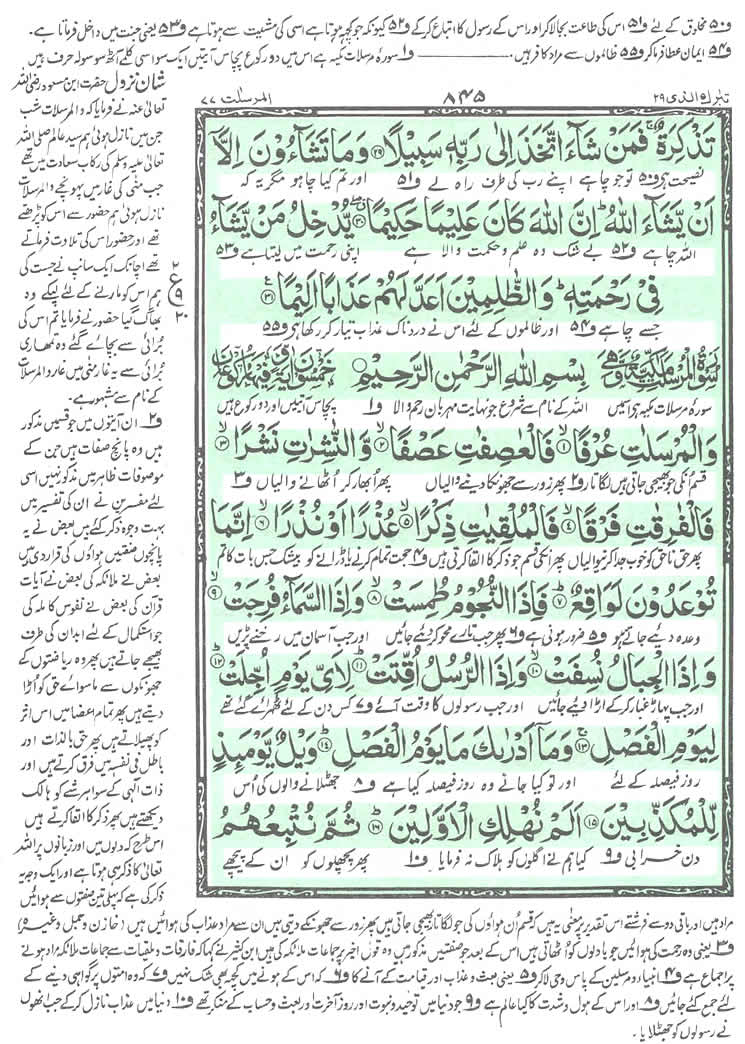 و۵۰ مخلوق کے لئے و۵۱ اس کی طاعت بجالا کر اور اس کے رسول کا اتباع کرکے و۵۲ کیونکہ جو کچھ ہوتا ہے اسی کی مشیت سے ہوتا ہے و۵۳ یعنی جنت میں داخل فرماتا ہے۔
و۵۴ ایمان عطا فرما کر و۵۵ ظالموں سے مراد کافر ہیں۔ و۱ سورۂ مرسلات مکیہ ہے اس میں دو رکوع پچاس آیتیں ایک سو اسی کلمے آٹھ سو سولہ حرف ہیں
تبٰرک الذی ۲۹
۸۴۵
المرسلت ۷۷
تَذْكِرَةٌ ۚ فَمَنْ شَآءَ اتَّخَذَ اِلٰى رَبِّهٖ سَبِيْلًا ﴿۲۹﴾ وَمَا تَشَآءُوْنَ اِلَّاۤ
نصیحت ہے و۵۰ تو جو چاہے اپنے رب کی طرف راہ لے و۵۱ اور تم کیا چاہو مگر یہ کہ
اَنْ يَّشَآءَ اللّٰهُ ؕ اِنَّ اللّٰهَ كَانَ عَلِيْمًا حَكِيْمًا ﴿۳۰﴾ يُّدْخِلُ مَنْ يَّشَآءُ
اللہ چاہے و۵۲ بے شک وہ علم و حکمت والا ہے اپنی رحمت میں لیتا ہے و۵۳
فِيْ رَحْمَتِهٖ ؕ وَالظّٰلِمِيْنَ اَعَدَّ لَهُمْ عَذَابًا اَلِيْمًا ﴿۳۱﴾
جسے چاہے و۵۴ اور ظالموں کے لئے اس نے دردناک عذاب تیار کر رکھا ہے و۵۵
بِسْمِ اللّٰهِ الرَّحْمٰنِ الرَّحِيْمِ
سورۂ مرسلات مکیہ ہے اس میں اللہ کے نام سے شروع جو نہایت مہربان رحم والا و۱ پچاس آیتیں اور دو رکوع ہیں
وَالْمُرْسَلٰتِ عُرْفًا ﴿۱﴾ فَالْعٰصِفٰتِ عَصْفًا ﴿۲﴾ وَّالنّٰشِرٰتِ نَشْرًا ﴿۳﴾
قسم ان کی جو بھیجی جاتی ہیں لگاتار و۲ پھر زور سے جھونکا دینے والیاں پھر ابھار کر اٹھانے والیاں و۳
فَالْفٰرِقٰتِ فَرْقًا ﴿۴﴾ فَالْمُلْقِيٰتِ ذِكْرًا ﴿۵﴾ عُذْرًا اَوْ نُذْرًا ﴿۶﴾ اِنَّمَا
پھر حق ناحق کو خوب جدا کرنے والیاں پھر ان کی قسم جو ذکر کا القا کرتی ہیں و۴ حجت تمام کرنے یا ڈرانے کو بیشک جس بات کا تم
تُوْعَدُوْنَ لَوَاقِعٌ ﴿۷﴾ فَاِذَا النُّجُوْمُ طُمِسَتْ ﴿۸﴾ وَاِذَا السَّمَآءُ فُرِجَتْ ﴿۹﴾
وعدہ دیئے جاتے ہو و۵ ضرور ہونی ہے و۶ پھر جب تارے محو کردیئے جائیں اور جب آسمان میں رخنے پڑیں
وَاِذَا الْجِبَالُ نُسِفَتْ ﴿۱۰﴾ وَاِذَا الرُّسُلُ اُقِّتَتْ ﴿۱۱﴾ لِاَيِّ يَوْمٍ اُجِّلَتْ ﴿۱۲﴾
اور جب پہاڑ غبار کرکے اڑا دیئے جائیں اور جب رسولوں کا وقت آئے و۷ کس دن کے لئے ٹھہرائے گئے تھے
لِيَوْمِ الْفَصْلِ ﴿۱۳﴾ وَمَاۤ اَدْرٰىكَ مَا يَوْمُ الْفَصْلِ ﴿۱۴﴾ وَيْلٌ يَّوْمَئِذٍ
روز فیصلہ کے لئے اور تو کیا جانے وہ روز فیصلہ کیا ہے و۸ جھٹلانے والوں کی اس
لِّلْمُكَذِّبِيْنَ ﴿۱۵﴾ اَلَمْ نُهْلِكِ الْاَوَّلِيْنَ ﴿۱۶﴾ ثُمَّ نُتْبِعُهُمُ
دن خرابی و۹ کیا ہم نے اگلوں کو ہلاک نہ فرمایا و۱۰ پھر پچھلوں کو ان کے پیچھے
شان نزول حضرت ابن مسعود رضی اللہ
تعالٰی عنہ نے فرمایا کہ والمرسلات شب
جن میں نازل ہوئی ہم سید عالم صلی اللہ
تعالٰی علیہ وسلم کی رکاب سعادت میں تھے
جب منٰی کی غار میں پہونچے والمرسلات
نازل ہوئی ہم حضور سے اس کو پڑھتے
تھے اور حضور اس کی تلاوت فرماتے
تھے اچانک ایک سانپ نے جست کی
ہم اس کو مارنے کے لئے لپکے وہ
بھاگ گیا حضور نے فرمایا تم اس کی
برائی سے بچائے گئے وہ تمہاری
برائی سے یہ غار منٰی میں غار والمرسلات
کے نام سے مشہور ہے۔
و۲ ان آیتوں میں جو قسمیں مذکور
ہیں وہ پانچ صفات ہیں جن کے
موصوفات ظاہر میں مذکور نہیں اسی
لئے مفسرین نے ان کی تفسیر میں
بہت وجوہ ذکر کئے ہیں بعض نے یہ
پانچوں صفتیں ہواؤں کی قرار دی ہیں
بعض نے ملائکہ کی بعض نے آیات
قرآن کی بعض نے نفوس کاملہ کی
جو استکمال کے لئے ابدان کی طرف
بھیجے جاتے ہیں پھر وہ ریاضتوں کے
جھونکوں سے ماسوائے حق کو اڑا
دیتے ہیں پھر تمام اعضا میں اس اثر
کو پھیلاتے ہیں پھر حق بالذات اور
باطل فی نفسہ میں فرق کرتے ہیں اور
ذات الٰہی کے سوا ہر شے کو ہالک
دیکھتے ہیں پھر ذکر کا القا کرتے ہیں
اس طرح کہ دلوں میں اور زبانوں پر اللہ
تعالٰی کا ذکر ہی ہوتا ہے اور ایک وجہ یہ
ذکر کی ہے کہ پہلی تین صفتوں سے ہوائیں
مراد ہیں اور باقی دو سے فرشتے اس تقدیر پر معنی یہ ہیں کہ قسم ان ہواؤں کی جو لگاتار بھیجی جاتی ہیں پھر زور سے جھونکے دیتی ہیں ان سے مراد عذاب کی ہوائیں ہیں (خازن و جمل وغیرہ)
و۳ یعنی وہ رحمت کی ہوائیں جو بادلوں کو اٹھاتی ہیں اس کے بعد جو صفتیں مذکور ہیں وہ قول اخیر پر جماعات ملائکہ کی ہیں ابن کثیر نے کہا کہ فارقات و ملقیات سے جماعات ملائکہ مراد ہونے
پر اجماع ہے و۴ انبیاء و مرسلین کے پاس وحی لاکر و۵ یعنی بعث و عذاب اور قیامت کے آنے کا و۶ کہ اس کے ہونے میں کچھ بھی شک نہیں و۷ کہ وہ امتوں پر گواہی دینے کے
لئے جمع کئے جائیں و۸ اور اس کے ہول و شدت کا کیا عالم ہے و۹ جو دنیا میں توحید و نبوت اور روز آخرت اور بعث و حساب کے منکر تھے و۱۰ دنیا میں عذاب نازل کرکے جب انھوں
نے رسولوں کو جھٹلایا۔